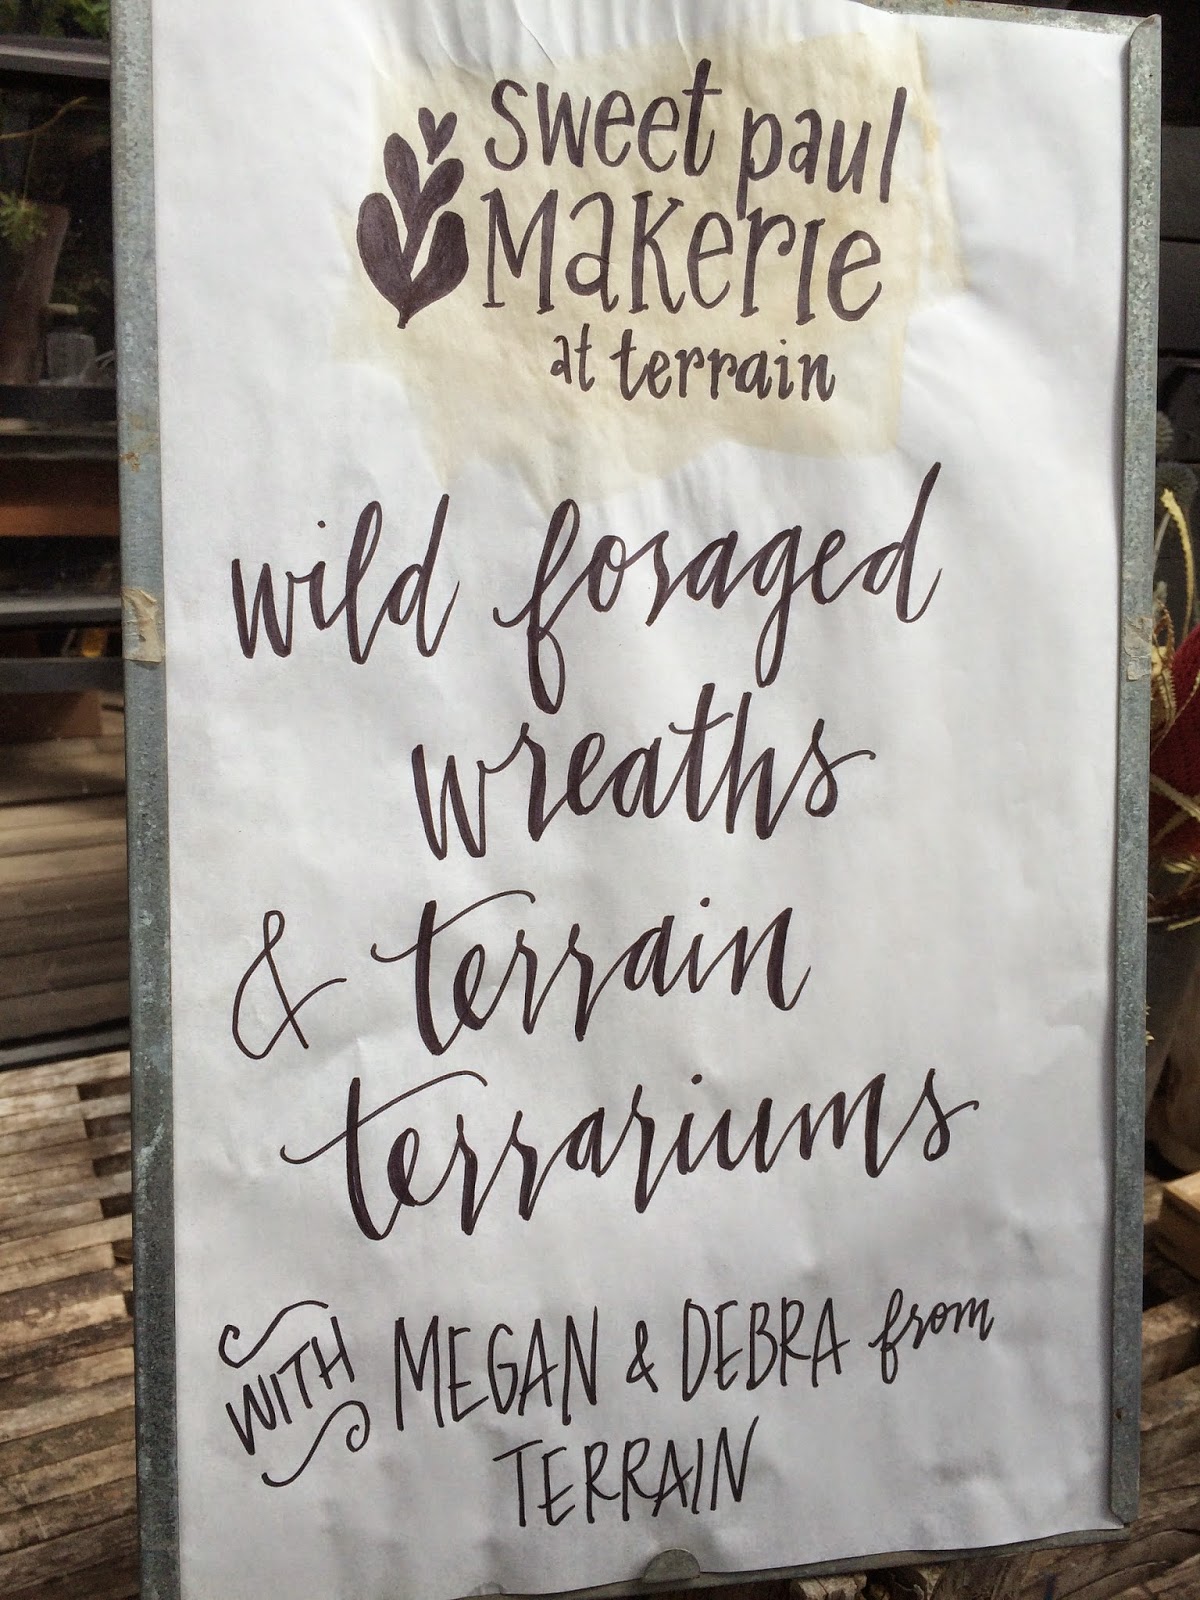 sweet paul
MaKerie
at terrain
wild foraged
wreaths
& terrain
terrariums
WITH MEGAN & DEBRA from
TERRAIN